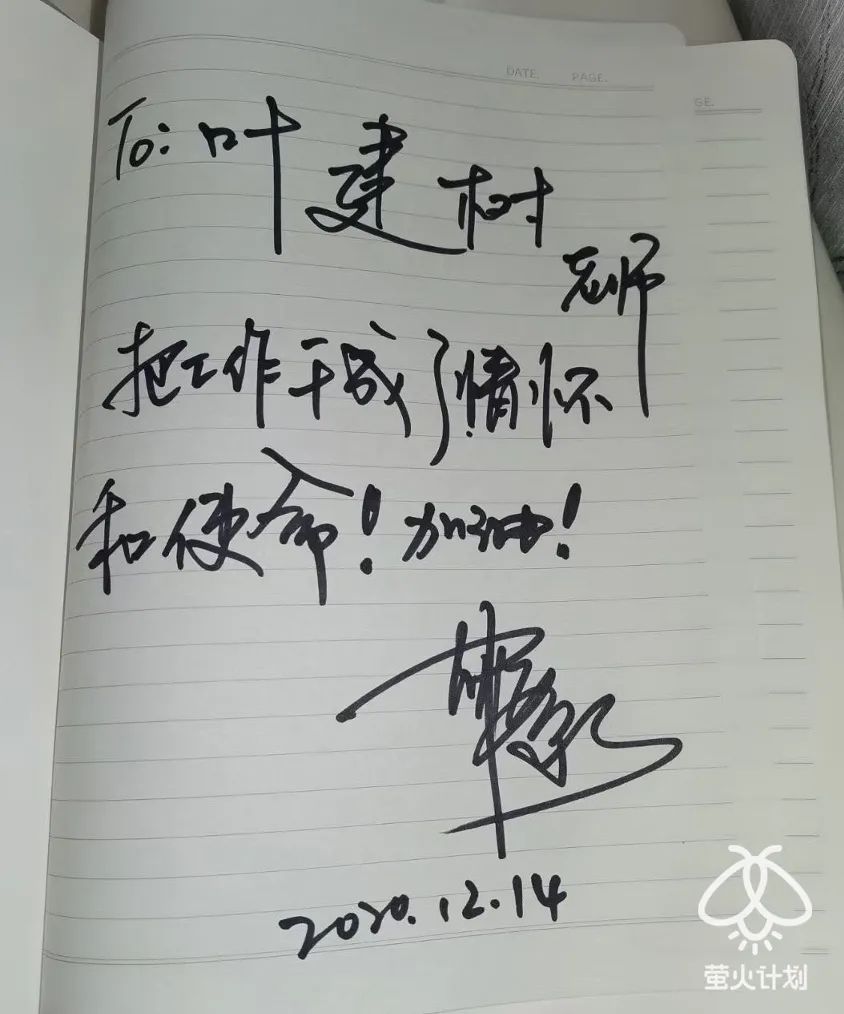 DATE. PAGE.
GE.
To: 叶建树
老师
把工作干成了情怀
和使命！加油！
2020.12.14
萤火计划